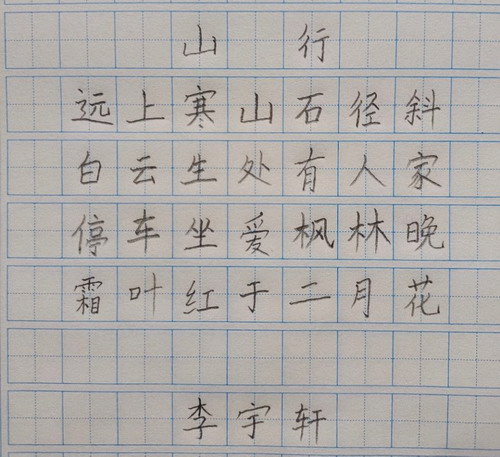 山行
远上寒山石径斜
白云生处有人家
停车坐爱枫林晚
霜叶红于二月花
李宇轩